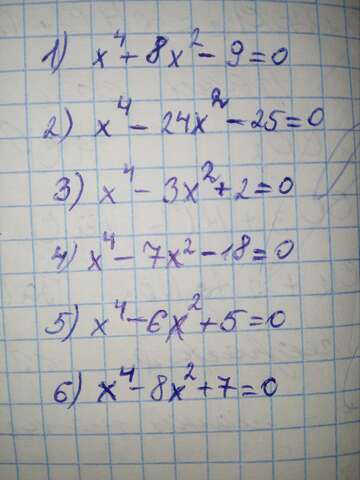 1) x⁴ + 8x² - 9 = 0
2) x⁴ - 24x² - 25 = 0
3) x⁴ - 3x² + 2 = 0
4) x⁴ - 7x² - 18 = 0
5) x⁴ - 6x² + 5 = 0
6) x⁴ - 8x² + 7 = 0